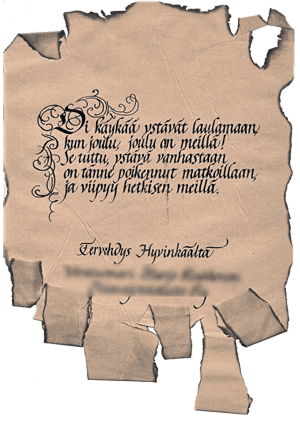 Oi käykää ystävät laulamaan,
kun joulu, joulu on meillä!
Se tuttu, ystävä vanhastaan
on tänne poikennut matkoillaan,
ja viipyy hetkisen meillä.
Tervehdys Hyvinkäältä